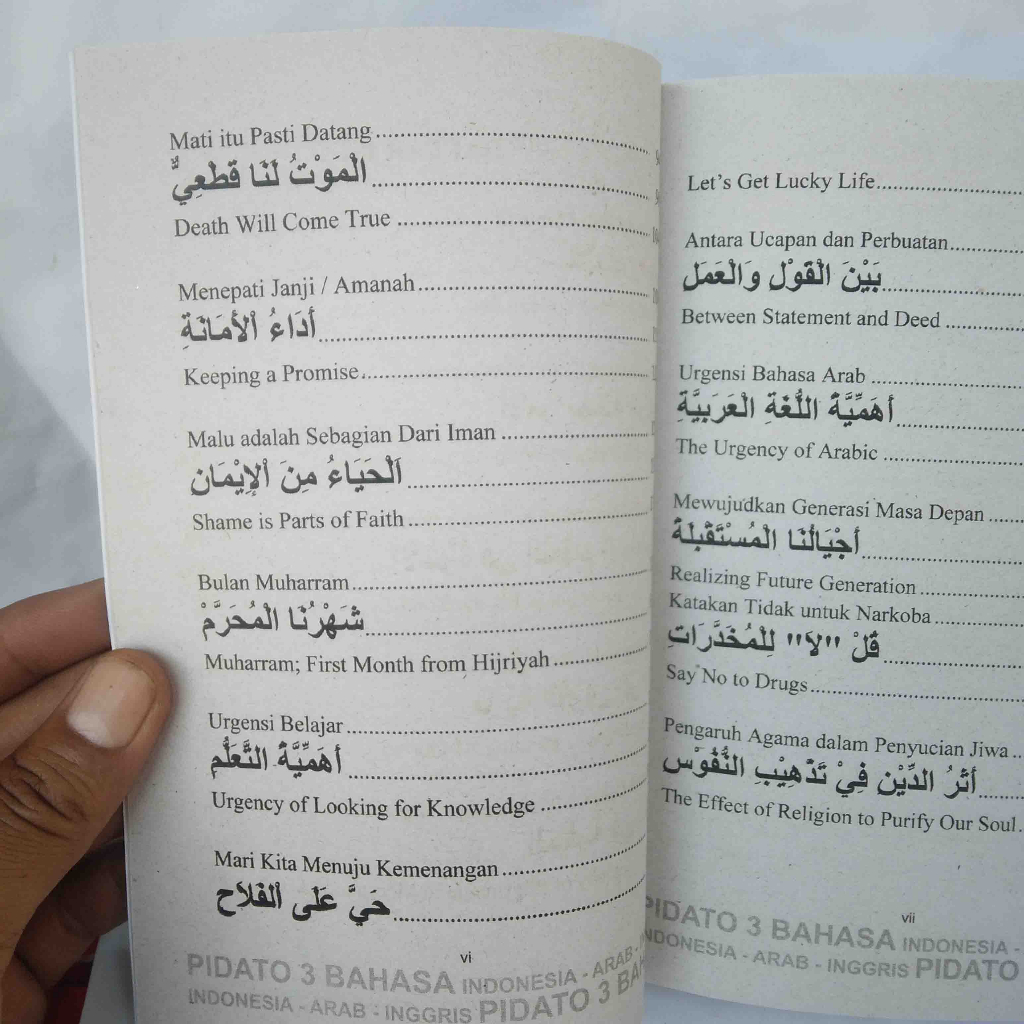 Mati itu Pasti Datang
الْمَوْتُ لَنَا قَطْعِيٌّ
Death Will Come True
Menepati Janji / Amanah
أَدَاءُ الْأَمَانَةِ
Keeping a Promise
Malu adalah Sebagian Dari Iman
اَلْحَيَاءُ مِنَ الْإِيْمَانِ
Shame is Parts of Faith
Bulan Muharram
شَهْرُنَا الْمُحَرَّمْ
Muharram; First Month from Hijriyah
Urgensi Belajar
أَهَمِّيَّةُ التَّعَلُّمِ
Urgency of Looking for Knowledge
Mari Kita Menuju Kemenangan
حَيَّ عَلَى الْفَلَاحِ
vi
PIDATO 3 BAHASA INDONESIA - ARAB -
INDONESIA - ARAB - INGGRIS PIDATO 3
Let's Get Lucky Life
Antara Ucapan dan Perbuatan
بَيْنَ الْقَوْلِ وَالْعَمَلِ
Between Statement and Deed
Urgensi Bahasa Arab
أَهَمِّيَّةُ اللُّغَةِ الْعَرَبِيَّةِ
The Urgency of Arabic
Mewujudkan Generasi Masa Depan
أَجْيَالُنَا الْمُسْتَقْبِلَةُ
Realizing Future Generation
Katakan Tidak untuk Narkoba
قُلْ "لَا" لِلْمُخَدَّرَاتِ
Say No to Drugs
Pengaruh Agama dalam Penyucian Jiwa
أَثَرُ الدِّيْنِ فِيْ تَذْهِيْبِ النُّفُوْسِ
The Effect of Religion to Purify Our Soul
vii
PIDATO 3 BAHASA INDONESIA -
INDONESIA - ARAB - INGGRIS PIDATO